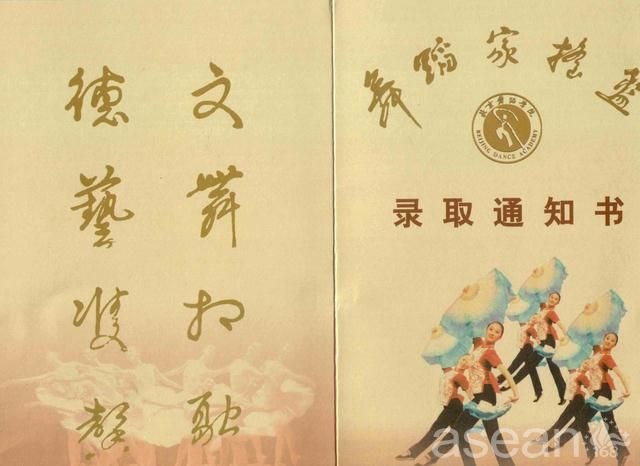 文舞相融
德藝雙馨
舞蹈家搖籃
北京舞蹈学院
BEIJING DANCE ACADEMY
录取通知书
asean
168